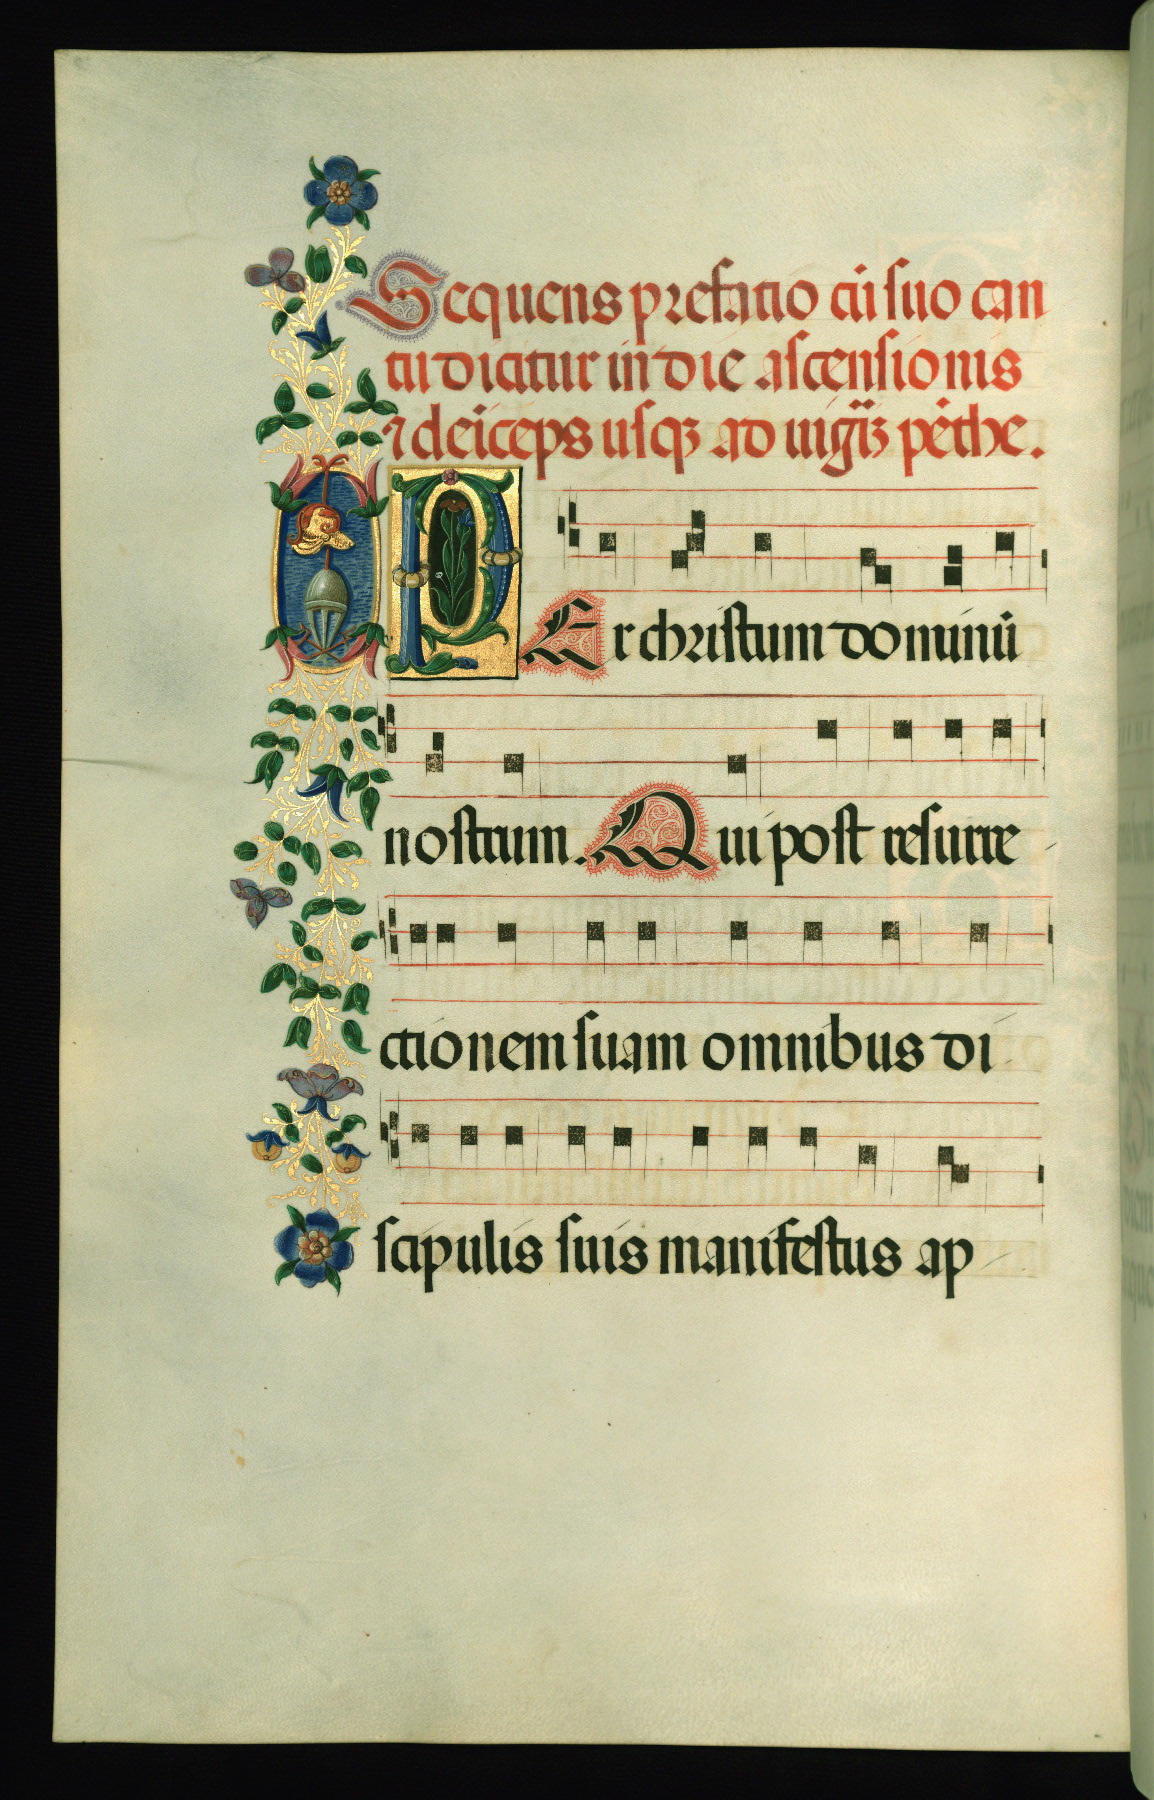 Sequens prefatio cū suo can
tu dicitur in die ascensionis
⁊ deīceps usqꝫ ad uigiꝫ pēthe.
PEr christum dominū
nostrum. Qui post resurre
ctionem suam omnibus di
scipulis suis manifestus ap